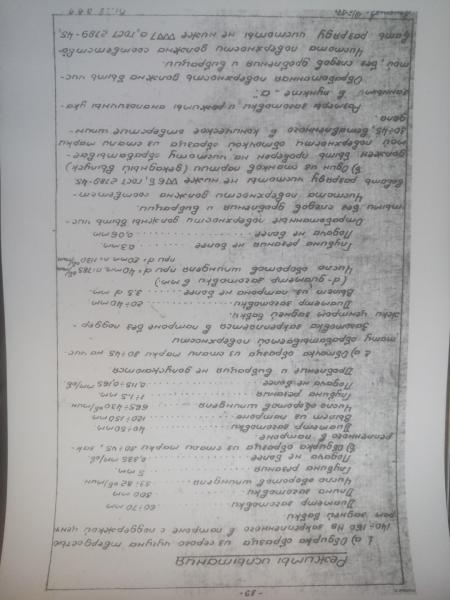 -19-
Режимы испытания
1. а) Обдирка образца из серого чугуна твердостью
140÷166 Нв закрепленного в патроне с поддержкой цент-
ром задней бабки.
Диаметр заготовки 60÷70 mm
Длина заготовки 300 mm
Число оборотов шпинделя 33; 82 об/мин
Глубина резания 5 mm
Подача не более 0,335 mm/об
б) Обдирка образца из стали марки 30÷45, зак-
репленного в патроне.
Диаметр заготовки 40÷50 mm
Вылет из патрона 120÷150 mm
Число оборотов шпинделя
Глубина резания 1÷1,5 mm
Подача не более
Дробление и вибрация не допускается.
2. а) Обточка образца из стали марки 30÷45 на чис-
тоту обрабатываемой поверхности
Заготовка закрепляется в патроне без поддер-
жки центром задней бабки.
Диаметр заготовки 20÷40 mm
Вылет из патрона не более 3,5 d mm
(d-диаметр заготовки в mm)
Число оборотов шпинделя при d=40mm
при d=20mm
Глубина резания не более 0,3 mm
Подача не более 0,06 mm
Отработанные поверхности должны быть чис-
тыми без следов дробления и вибрации.
Чистота поверхности должна соответст-
вовать разряду чистоты не ниже ▽▽▽6, гост 2789-45
б) Один из станков партии (декадный выпуск)
должен быть проверен на чистоту обрабатывае-
мой поверхности обточкой образца из стали марки
30÷45, вставленного в коническое отверстие шпин-
деля.
Размеры заготовки и режимы аналогичны ука-
занным в пункте „а"
Обработанная поверхность должна быть чис-
той без следов дробления и вибрации.
Чистота поверхности должна соответство-
вать разряду чистоты не ниже ▽▽▽7а, гост 2789-45.